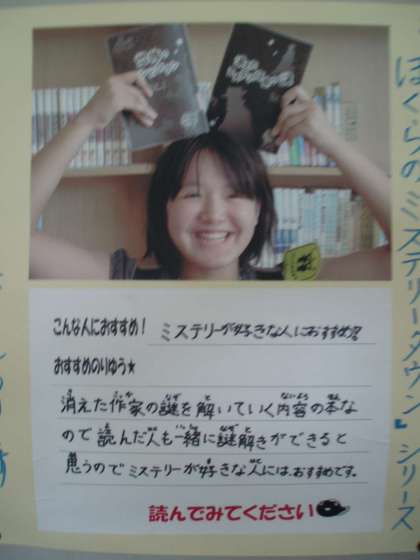 ぼくらのミステリータウン』シリーズ
こんな人におすすめ！
ミステリーが好きな人におすすめ♪
おすすめのりゆう★
消えた作家の謎を解いていく内容の本な
ので読んだ人も一緒に謎解きができると
思うのでミステリーが好きな人には、おすすめです。
読んでみてください